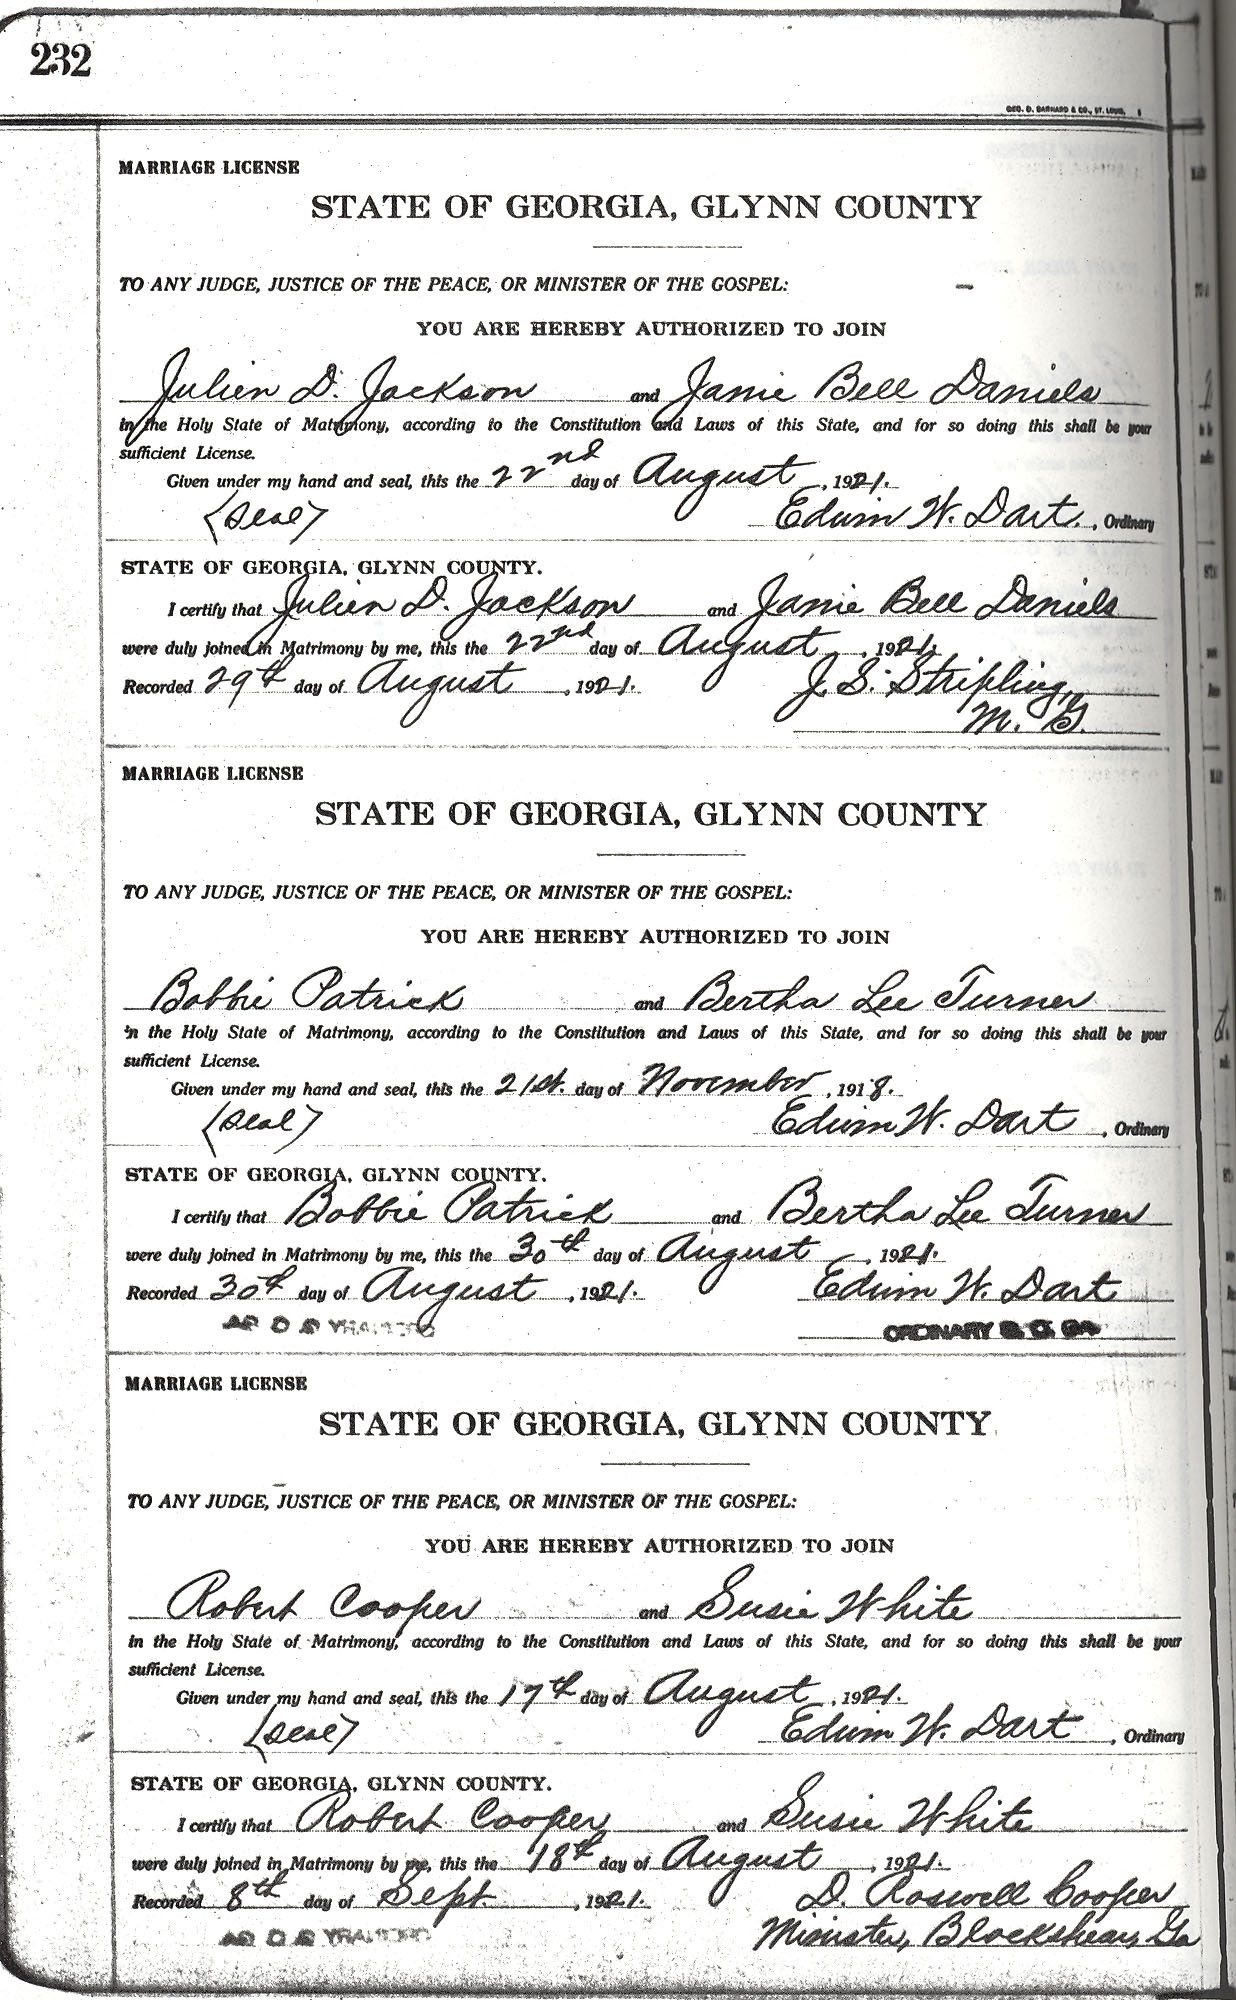 232
GEO. D. BARNARD & CO., ST. LOUIS,
MARRIAGE LICENSE
STATE OF GEORGIA, GLYNN COUNTY
TO ANY JUDGE, JUSTICE OF THE PEACE, OR MINISTER OF THE GOSPEL:
YOU ARE HEREBY AUTHORIZED TO JOIN
Julien D. Jackson and Janie Bell Daniels
in the Holy State of Matrimony, according to the Constitution and Laws of this State, and for so doing this shall be your
sufficient License.
Given under my hand and seal, this the 22nd day of August, 1921.
(Seal) Edwin W. Dart., Ordinary
STATE OF GEORGIA, GLYNN COUNTY.
I certify that Julien D. Jackson and Janie Bell Daniels
were duly joined in Matrimony by me, this the 22nd day of August, 1921.
Recorded 29th day of August, 1921. J. S. Stripling,
M. G.
MARRIAGE LICENSE
STATE OF GEORGIA, GLYNN COUNTY
TO ANY JUDGE, JUSTICE OF THE PEACE, OR MINISTER OF THE GOSPEL:
YOU ARE HEREBY AUTHORIZED TO JOIN
Bobbie Patrick and Bertha Lee Turner
in the Holy State of Matrimony, according to the Constitution and Laws of this State, and for so doing this shall be your
sufficient License.
Given under my hand and seal, this the 21st. day of November, 1918.
(Seal) Edwin W. Dart, Ordinary
STATE OF GEORGIA, GLYNN COUNTY.
I certify that Bobbie Patrick and Bertha Lee Turner
were duly joined in Matrimony by me, this the 30th day of August, 1921.
Recorded 30th day of August, 1921. Edwin W. Dart
ORDINARY G. C. GA
MARRIAGE LICENSE
STATE OF GEORGIA, GLYNN COUNTY
TO ANY JUDGE, JUSTICE OF THE PEACE, OR MINISTER OF THE GOSPEL:
YOU ARE HEREBY AUTHORIZED TO JOIN
Robert Cooper and Susie White
in the Holy State of Matrimony, according to the Constitution and Laws of this State, and for so doing this shall be your
sufficient License.
Given under my hand and seal, this the 17th day of August, 1921.
(Seal) Edwin W. Dart, Ordinary
STATE OF GEORGIA, GLYNN COUNTY.
I certify that Robert Cooper and Susie White
were duly joined in Matrimony by me, this the 18th day of August, 1921.
Recorded 8th day of Sept., 1921. D. Roswell Cooper
Minister, Blackshear, Ga